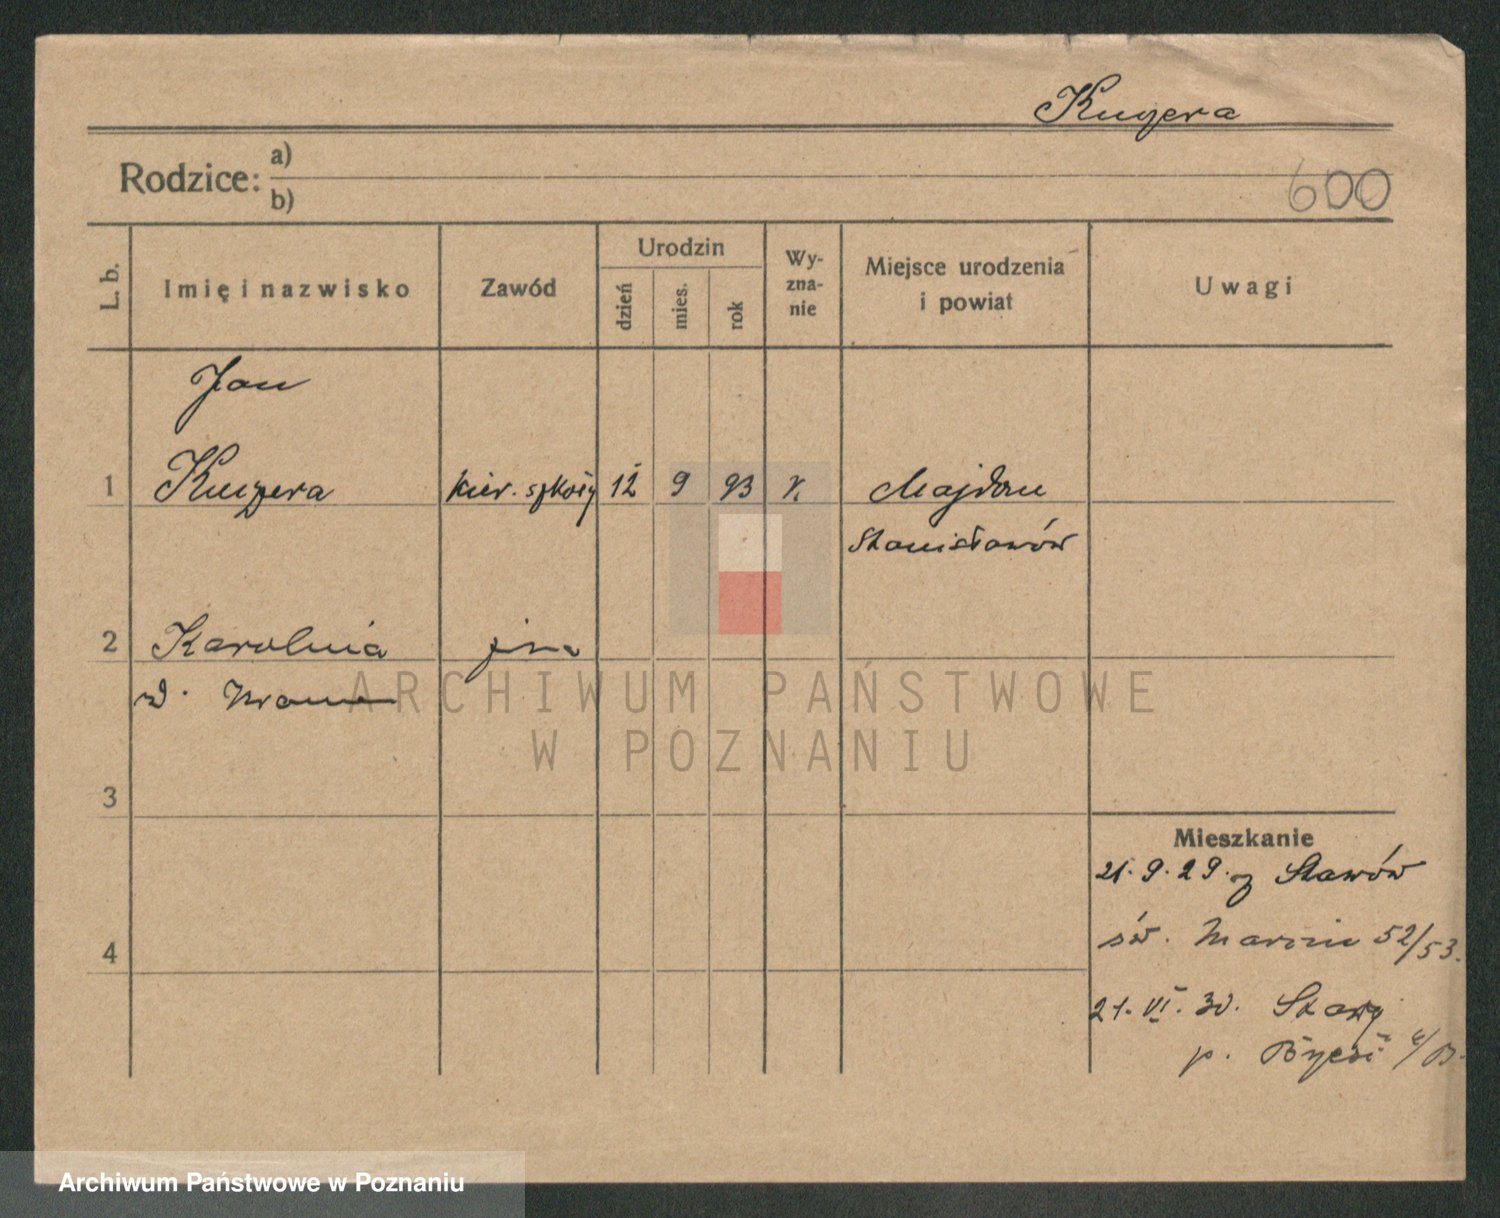 Kuczera
600
Rodzice: a)
b)
L. b.
Imię i nazwisko
Zawód
Urodzin
dzień
mies.
rok
Wy-
zna-
nie
Miejsce urodzenia
i powiat
Uwagi
Jan
1 kier. szkoły 12 9 93 Majdan
Stanisławów
2 Karolina
3
Mieszkanie
21.9.29. z Stawów
św. Marcin 52/53.
4
21.VI.30.
p.
ARCHIWUM PAŃSTWOWE
W POZNANIU
Archiwum Państwowe w Poznaniu